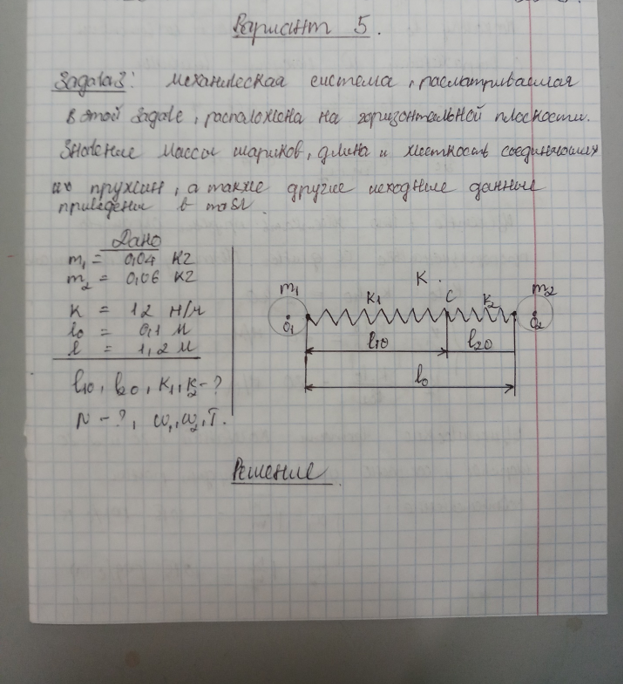 Вариант 5.
Задача 3: Механическая система, расматриваемая
в этой задаче, расположена на горизонтальной плоскости.
Значение массы шариков, длина и жесткость соединяющих
их пружин, а также другие исходные данные
приведены в табл.
Дано
m₁ = 0,04 кг
m₂ = 0,06 кг
K = 12 н/м
l₀ = 0,1 м
l = 1,2 м
l₁₀, l₂₀, K₁, K₂ - ?
N - ?, ω₁, ω₂, T.
K.
m₁ K₁ C K₂ m₂
O₁ O₂
l₁₀ l₂₀
l₀
Решение